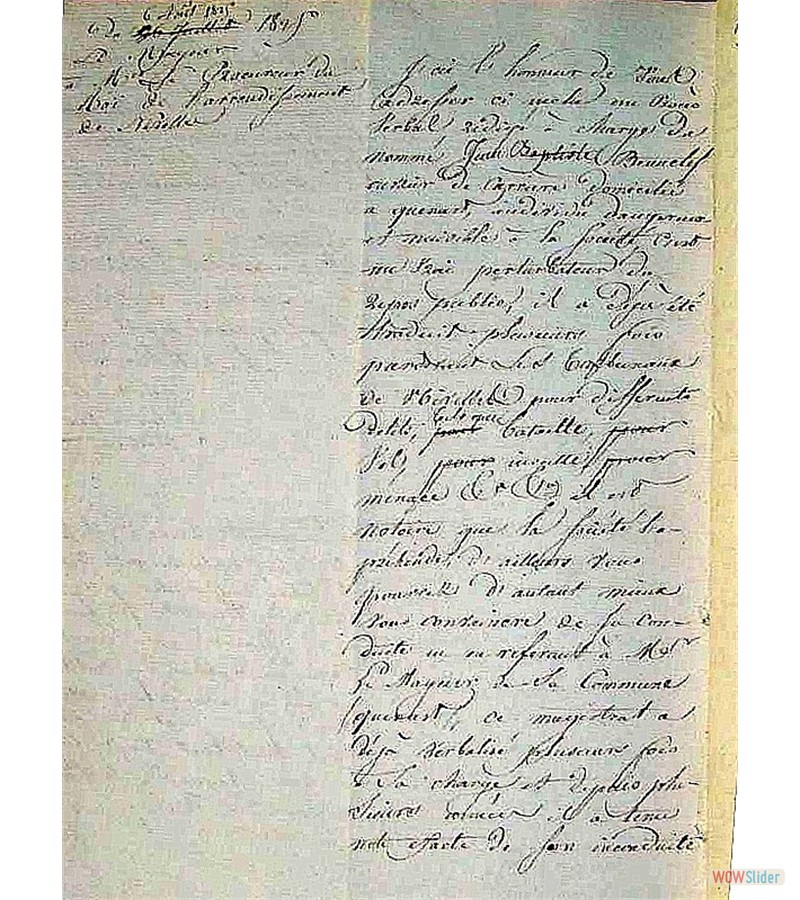 6 Août 1825
Du 1825
Procureur du
Roi de l'arrondissement
de Nivelle
J'ai l'honneur de vous
adresser ci joint un Procès
Verbal rédigé à charge du
nommé Jean Baptiste
de carrière domicilié
a quenast, individu dangereux
et nuisible à la société, c'est
un vrai perturbateur du
repos public, il a déjà été
traduit plusieurs fois
pardevant les tribunaux
de Nivelle pour différents
délits, tels que
pour bataille, pour
vol, pour insulte, pour
menace &a &a, il est
notoire que la société
d'ailleurs vous
pourrez d'autant mieux
vous convaincre de sa con-
duite en en referant à Mr
le Mayeur de sa Commune
(quenast), ce magistrat a
déjà verbalisé plusieurs fois
à sa charge et depuis plu-
sieures années il a tenu
note exacte de son inconduite
WOWSlider